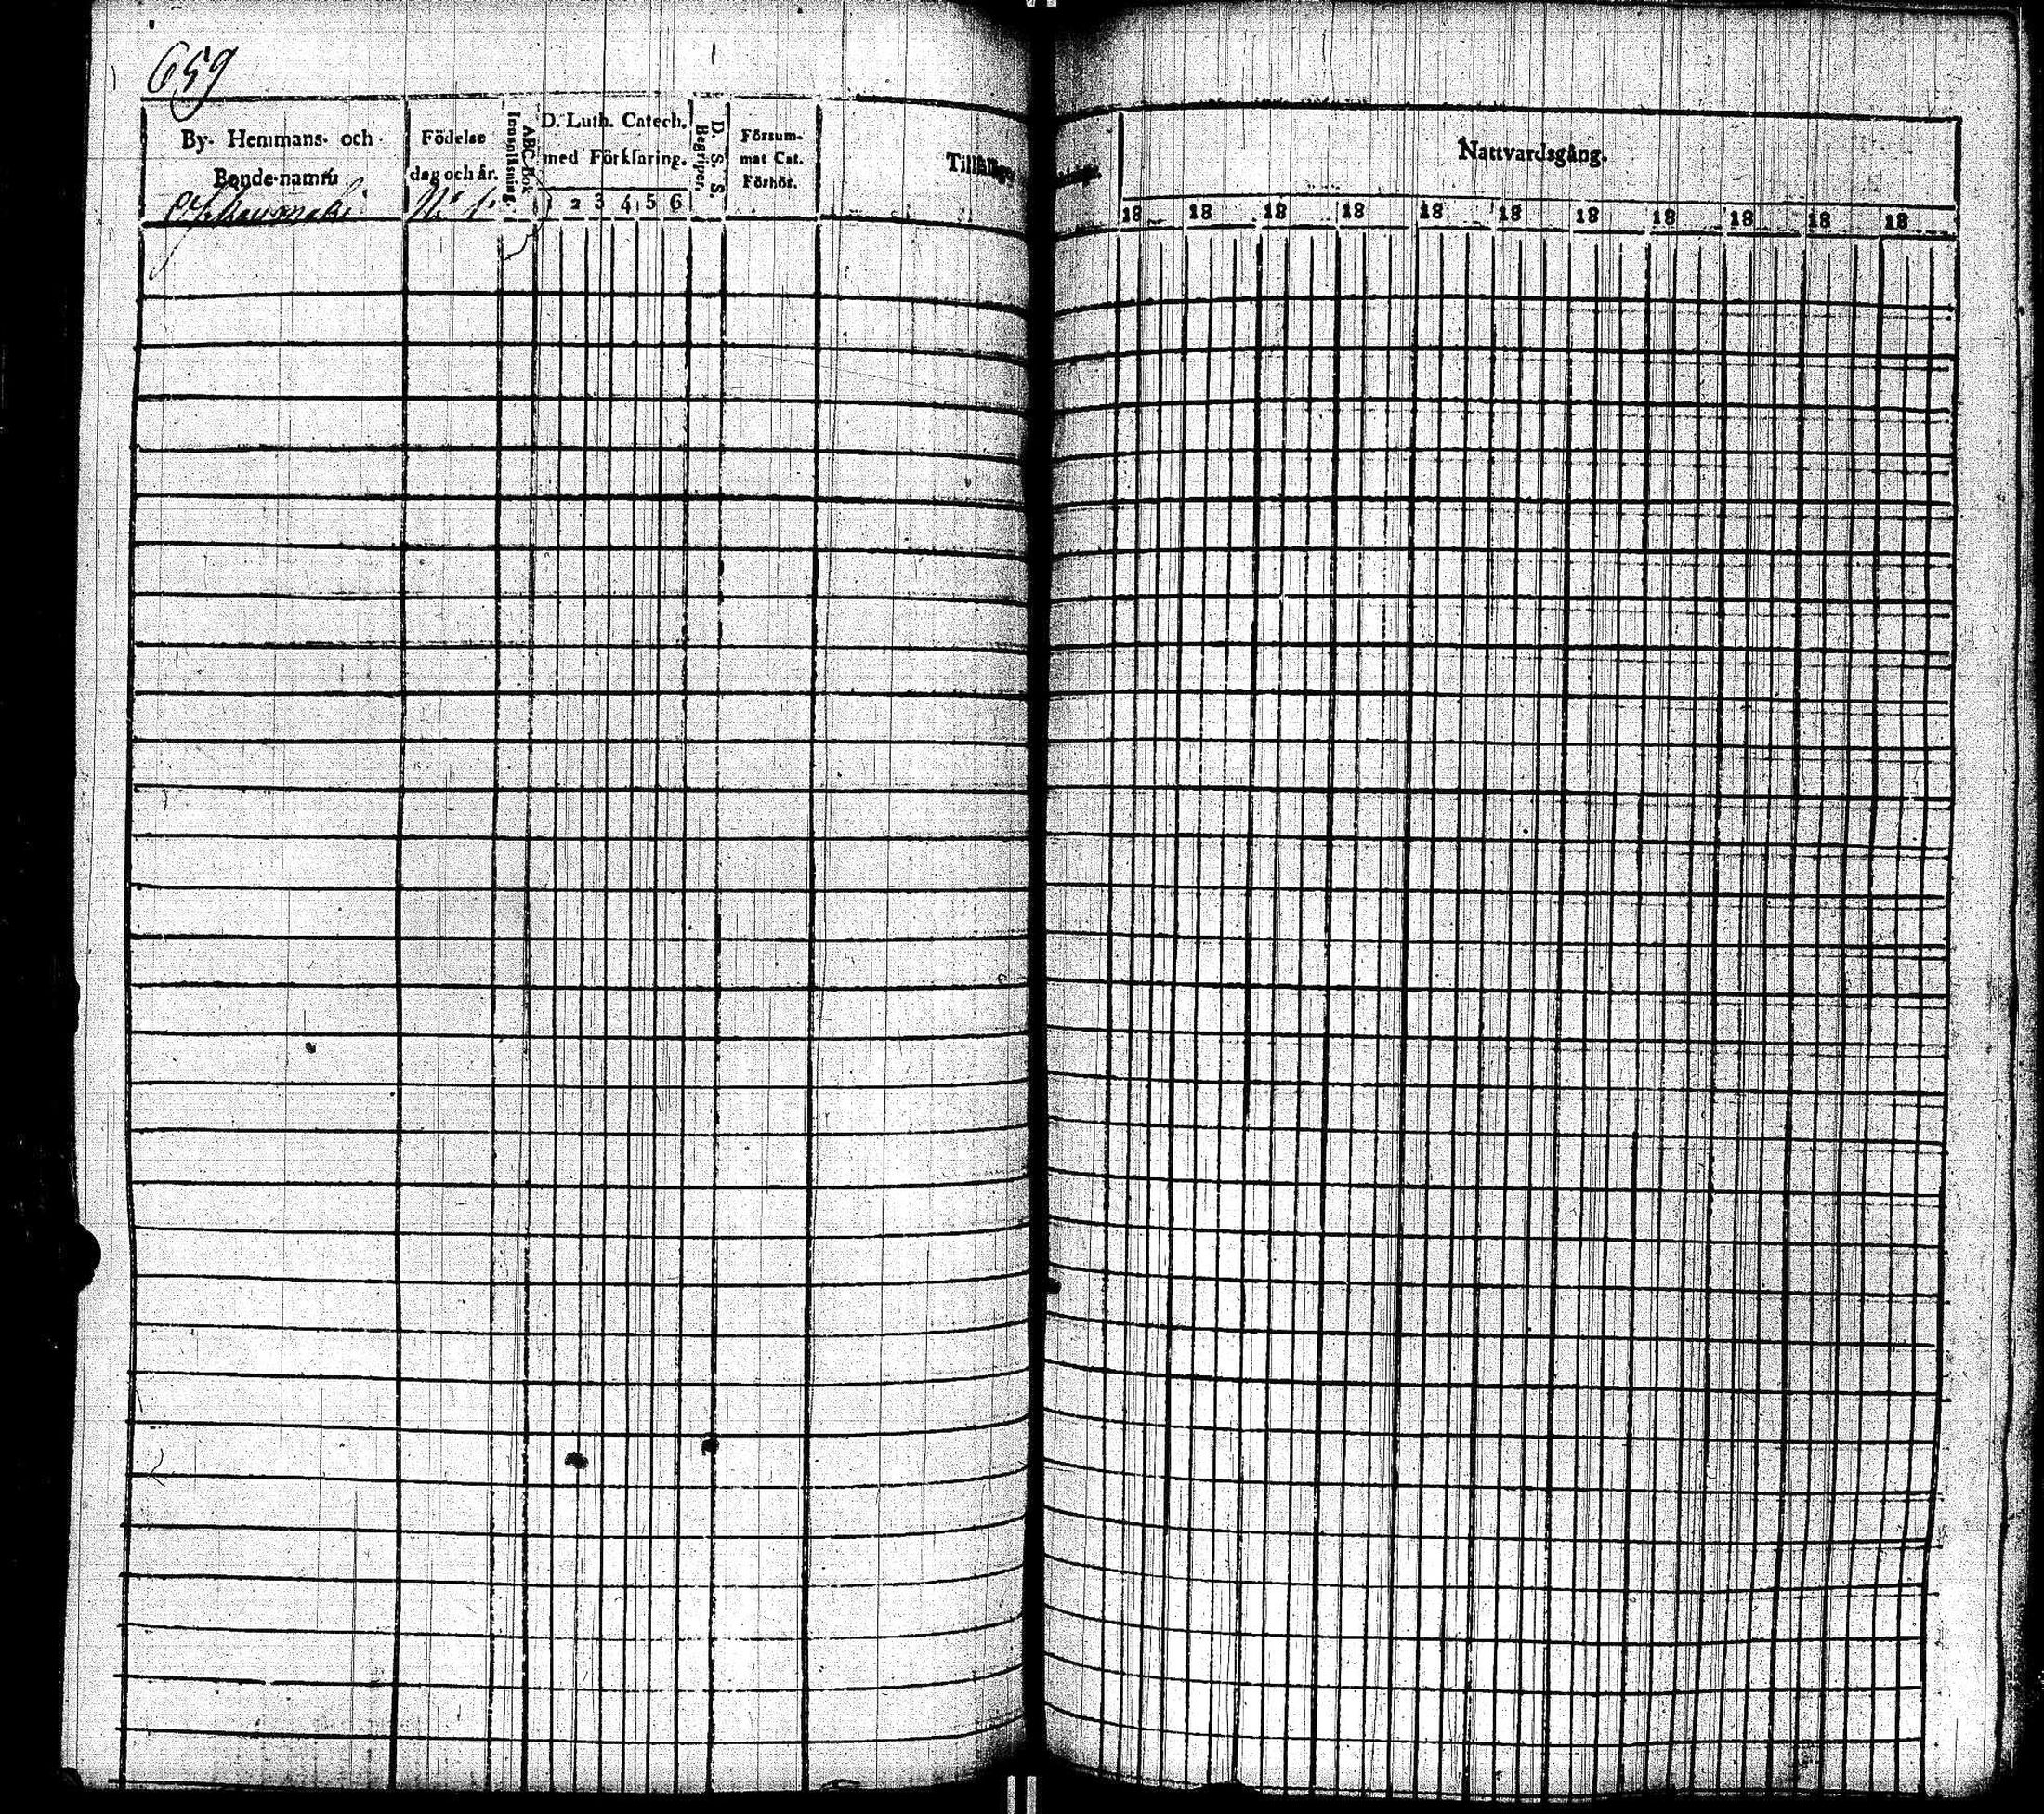 659
By- Hemmans- och
Bonde-namn
Födelse
dag och år.
No 1.
Innanläsning.
ABC-Bok
D. Luth. Catech.
med Förklaring.
1 2 3 4 5 6
Begriper.
D. S. S.
Försum-
mat Cat.
Förhör.
Nattvardsgång.
18 18 18 18 18 18 18 18 18 18 18